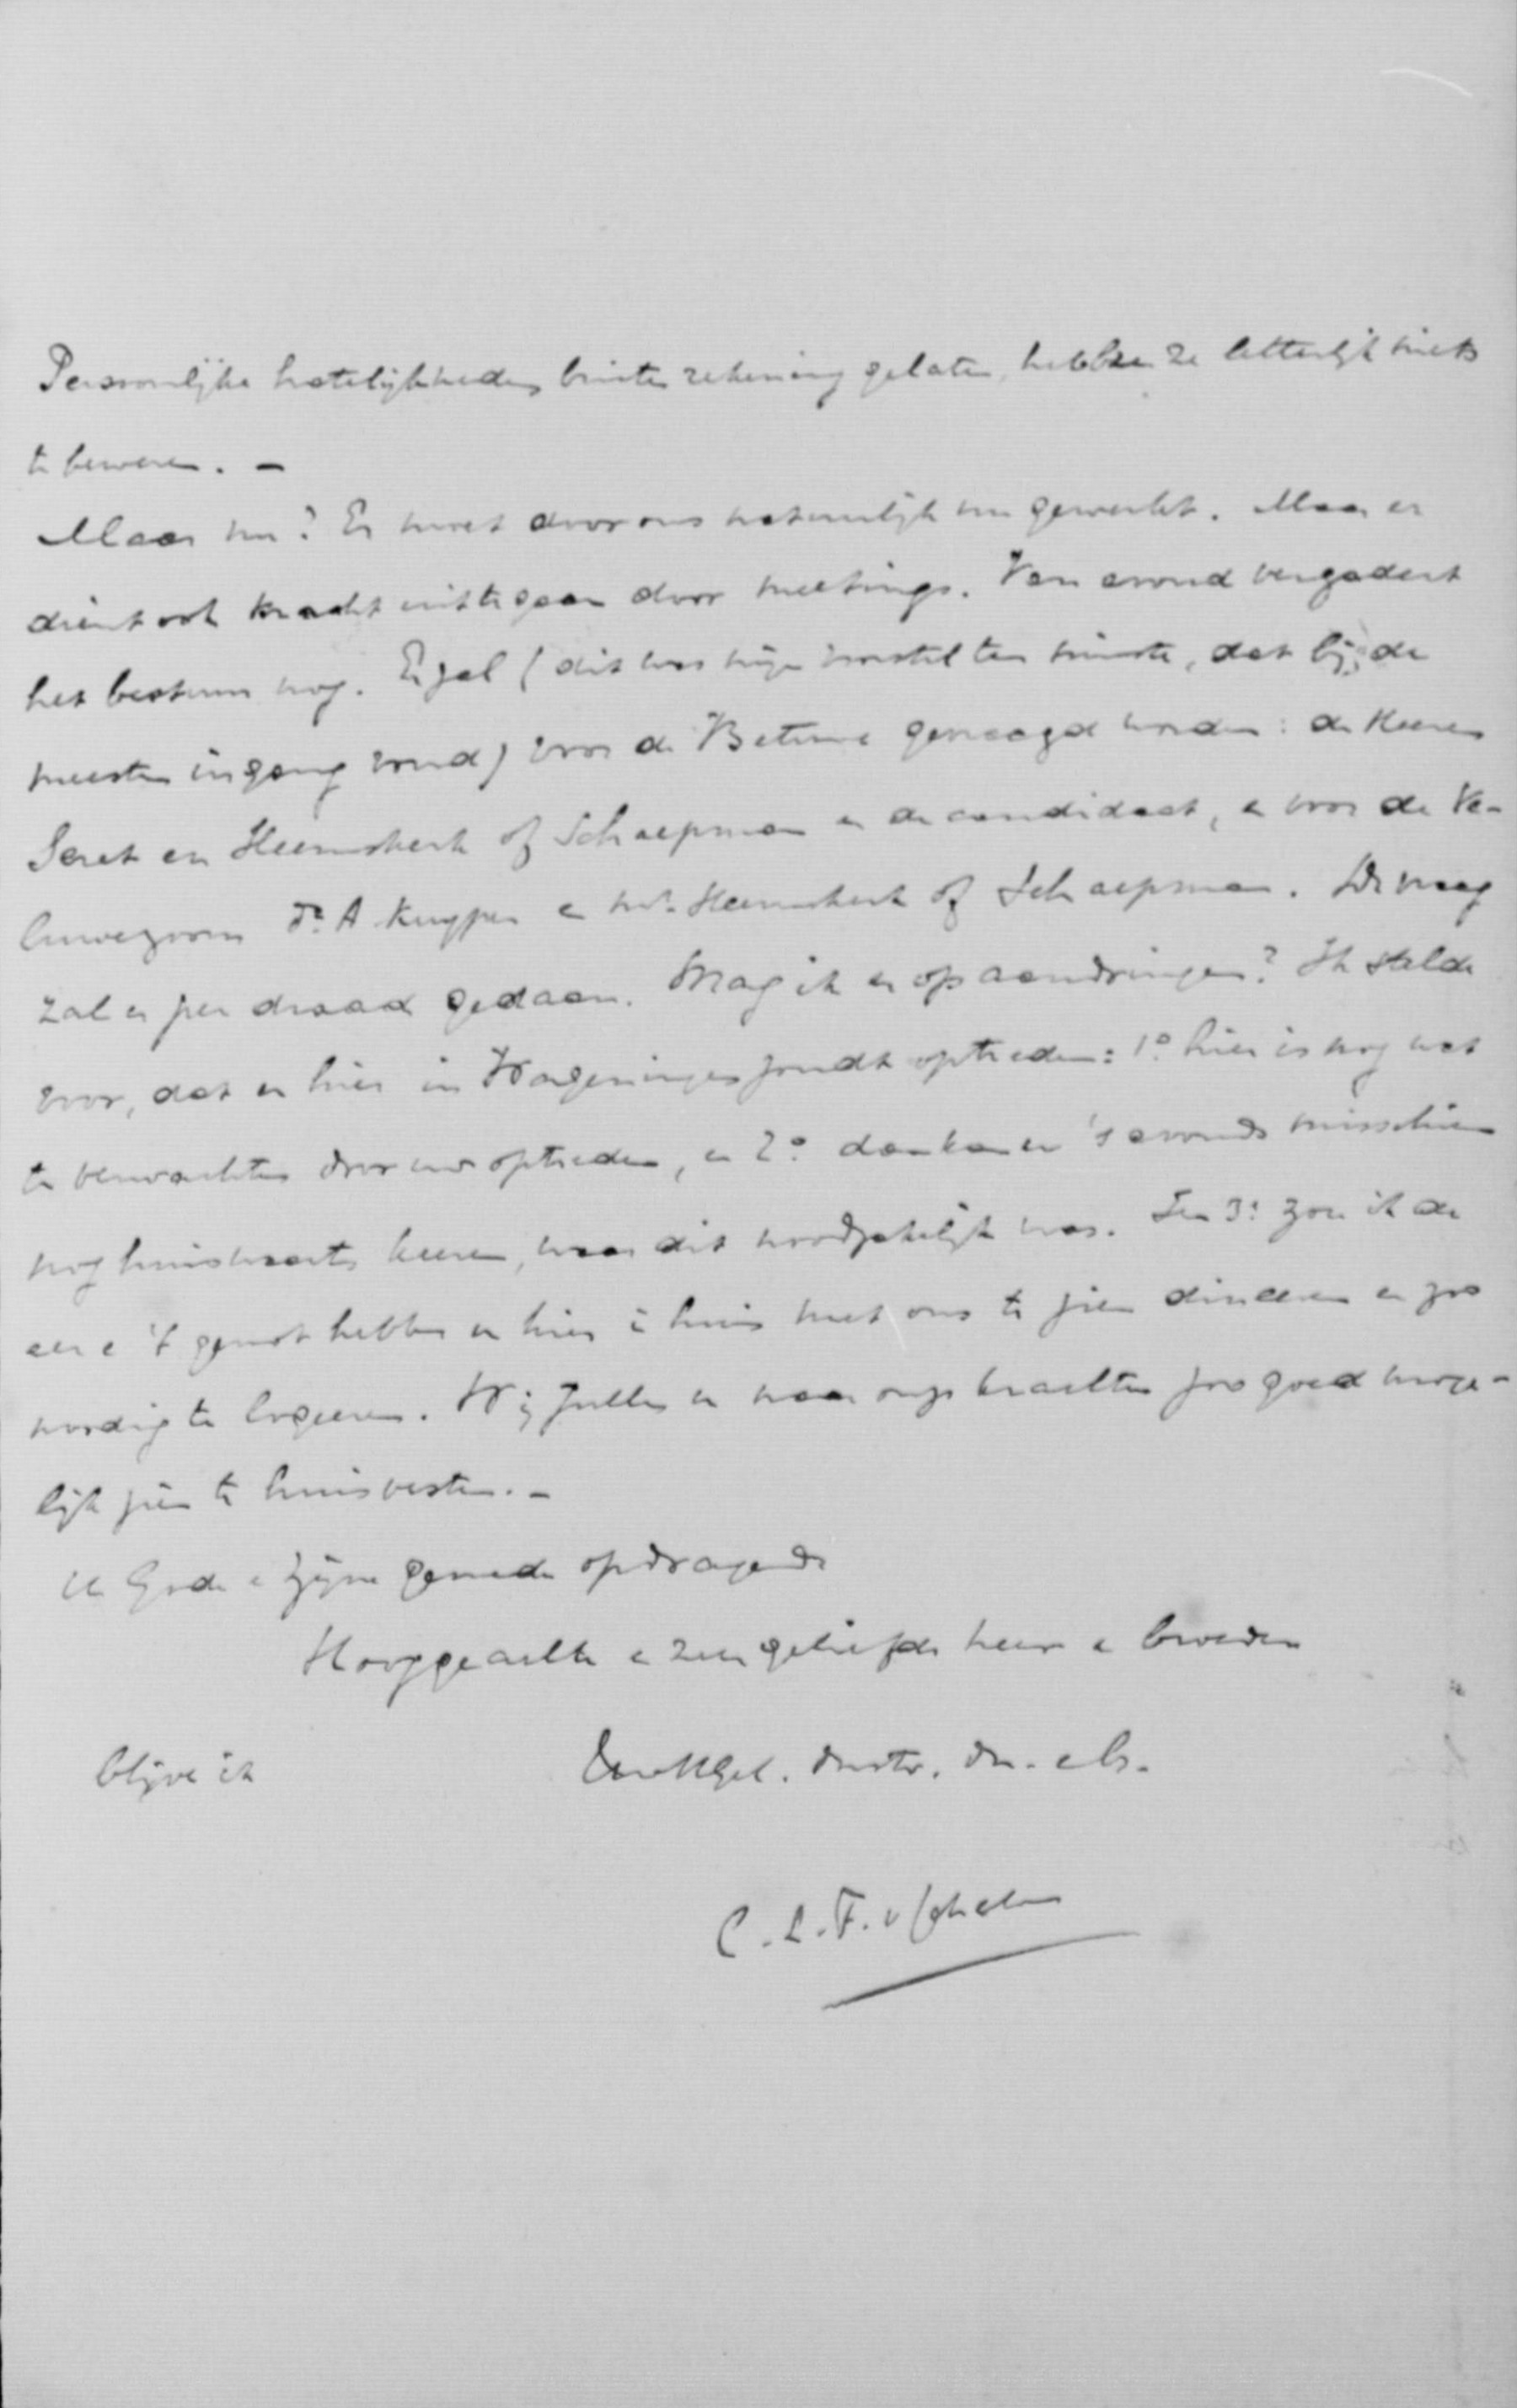 Persoonlijke hatelijkheden buiten rekening gelaten, hebben ze letterlijk niets
te beweren. -
Maar nu? Er moet door ons natuurlijk nu gewerkt. Maar er
dient ook kracht uit te gaan door meetings. Van avond vergadert
het bestuur nog. Er zal (dit was mijn voorstel ten minste, dat bij de
meesten ingang vond) voor de Betuwe gevraagd worden: de Heeren
en Heemskerk of Schaepman en de candidaat, en voor de Ve-
luwezoom Dr. A. Kuyper en Mr. Heemskerk of Schaepman. De vraag
zal u per draad gedaan. Mag ik er op aandringen? Ik stelde
voor, dat u hier in Wageningen zoudt optreden: 1o. hier is nog wat
te verwachten door uw optreden, en 2o. dan kan u 's avonds misschien
nog huiswaarts keeren, waar dit noodzakelijk was. Ten 3e zou ik de
eer en 't genot hebben u hier in huis met ons te zien dineeren en zoo
noodig te logeeren. Wij zullen u naar onze krachten zoo goed moge-
lijk zien te huisvesten. -
U Gode en Zijne genade opdragende
Hooggeachte en zeer geliefde heer en broeder
blijve ik
UwHGel. dnstw. dr. en br.
C. L. F. v Schelven